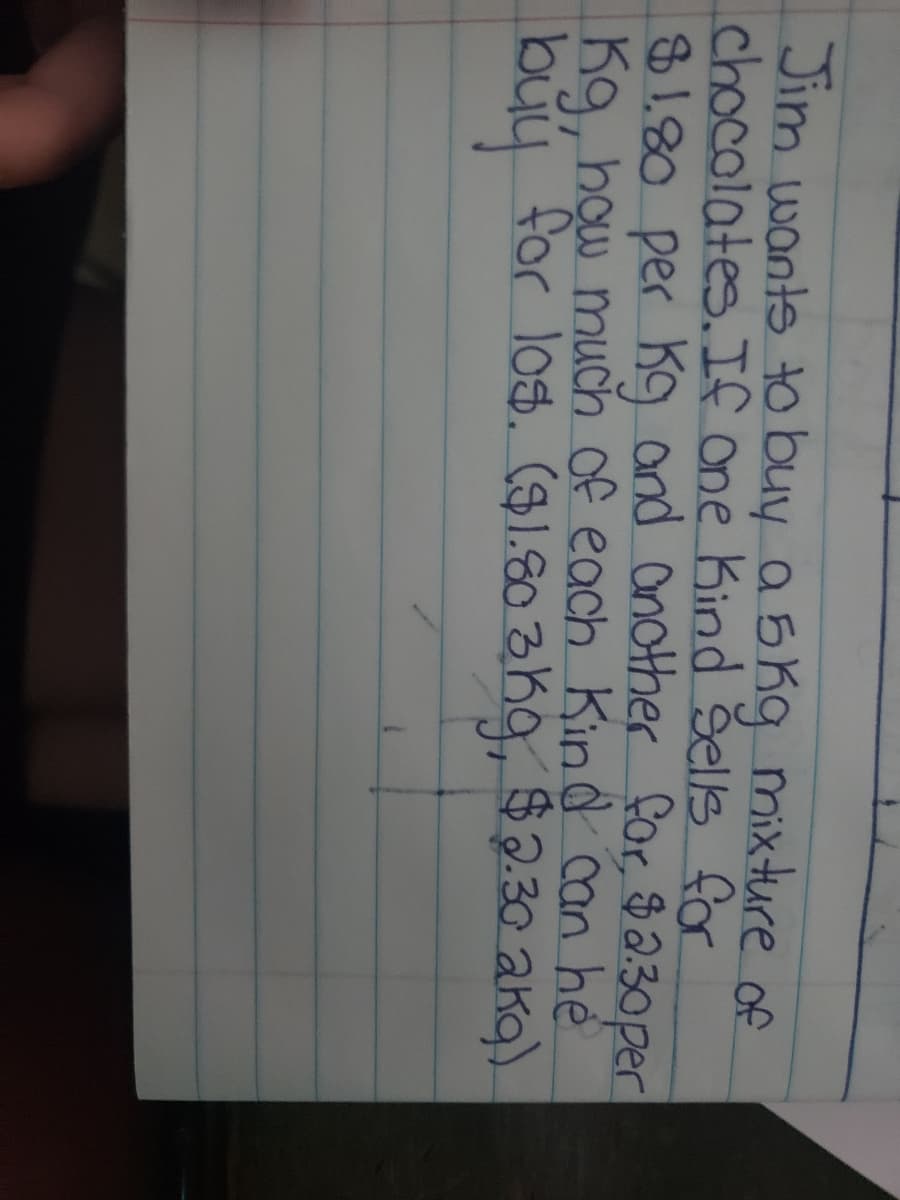 Jim wants to buy a 5Kg mixture of
chocolates. If one Kind Sells for
$1.80 per Kg and another for, $2.30 per
Kg, how much of each Kind can he
buyy for 10$. ($1.80 3kg, $2.30 2Kg)